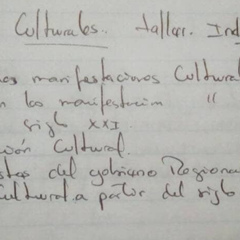 Culturales. tallar. Ind
manifestaciones Cultural
los manifestacion "
siglo XXI.
ción Cultural.
del gobierno Regiona
Cultural a partir del siglo